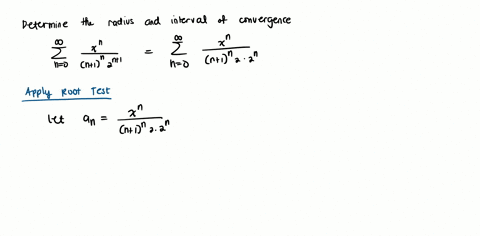 Determine the radius and interval of convergence
∞ ∑ n=0 xⁿ / (n+1)ⁿ 2ⁿ⁺¹ = ∞ ∑ n=0 xⁿ / (n+1)ⁿ 2 · 2ⁿ
Apply Root Test
let aₙ = xⁿ / (n+1)ⁿ 2 · 2ⁿ